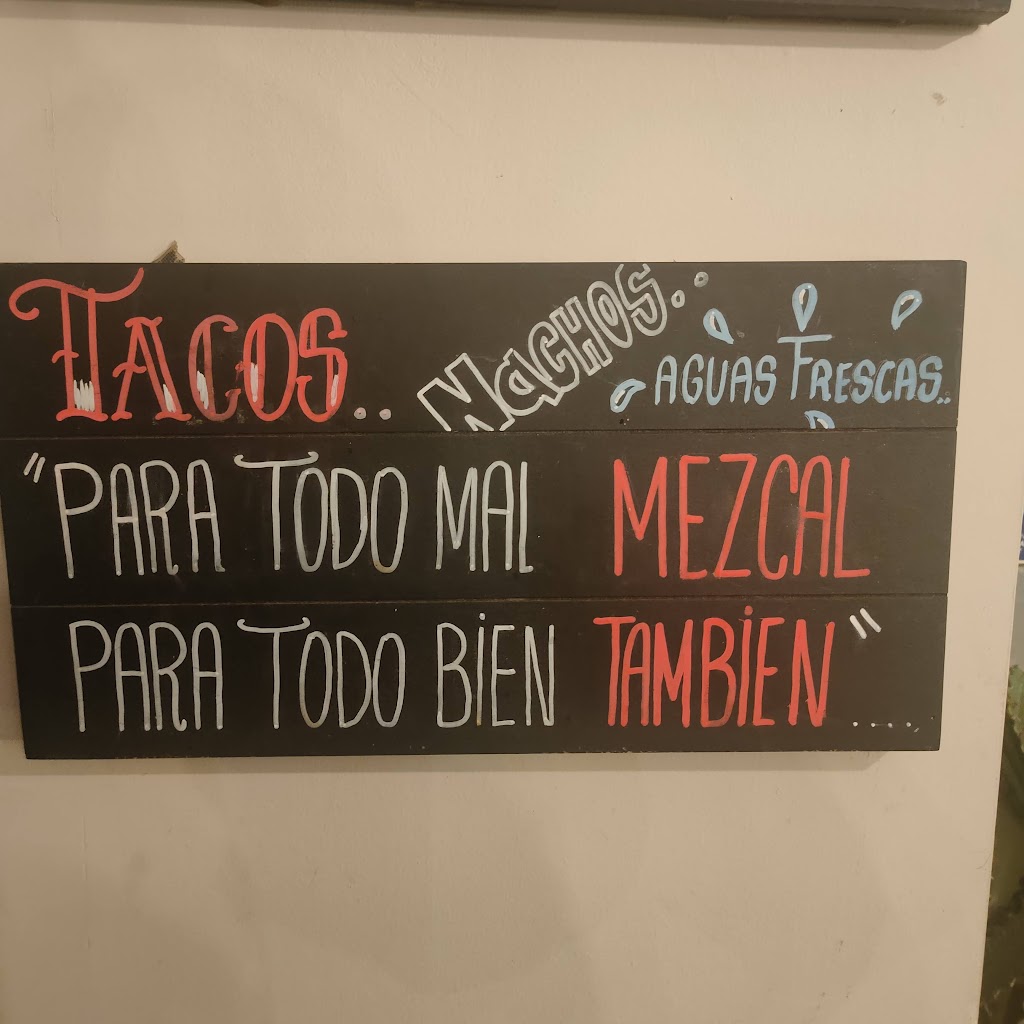 TACOS.. NACHOS.. AGUAS FRESCAS..
"PARA TODO MAL MEZCAL
PARA TODO BIEN TAMBIEN"....